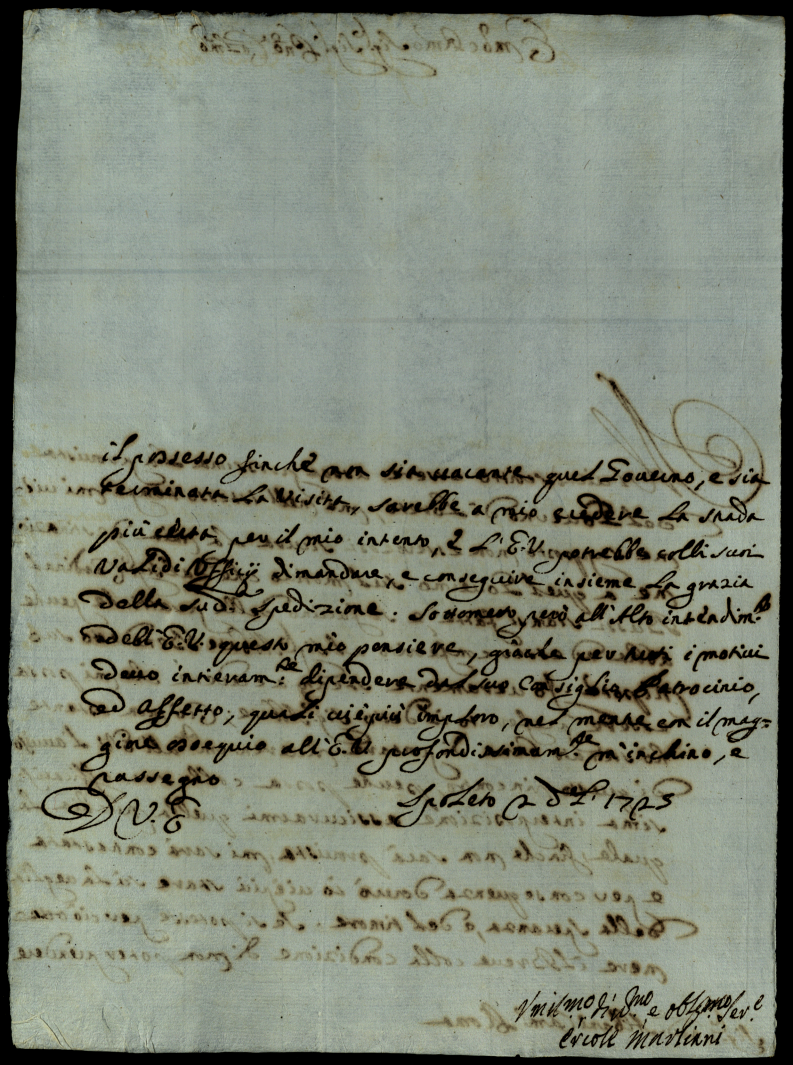 il possesso finchè non sia vacante quel Governo, e sia
terminata la visita, sarebbe a mio credere la strada
più certa per il mio intento, e l'E.V. potrebbe colli suoi
validi Uffizij dimandare, e conseguire insieme la grazia
della sud.ª spedizione. Sottometto però all'Alto intendim.to
dell'E.V. questo mio pensiere, giache per tutti i motivi
devo intieram.te dipendere dal suo Consiglio, Patrocinio,
ed Affetto, quali viepiù imploro, nel mentre con il mag=
giore ossequio all'E.V. profondissimam.te m'inchino, e
rassegno
D V. E
Spoleto 2 1723
Umil.mo Div.mo e obl.mo Ser.e
Ercole Marliani